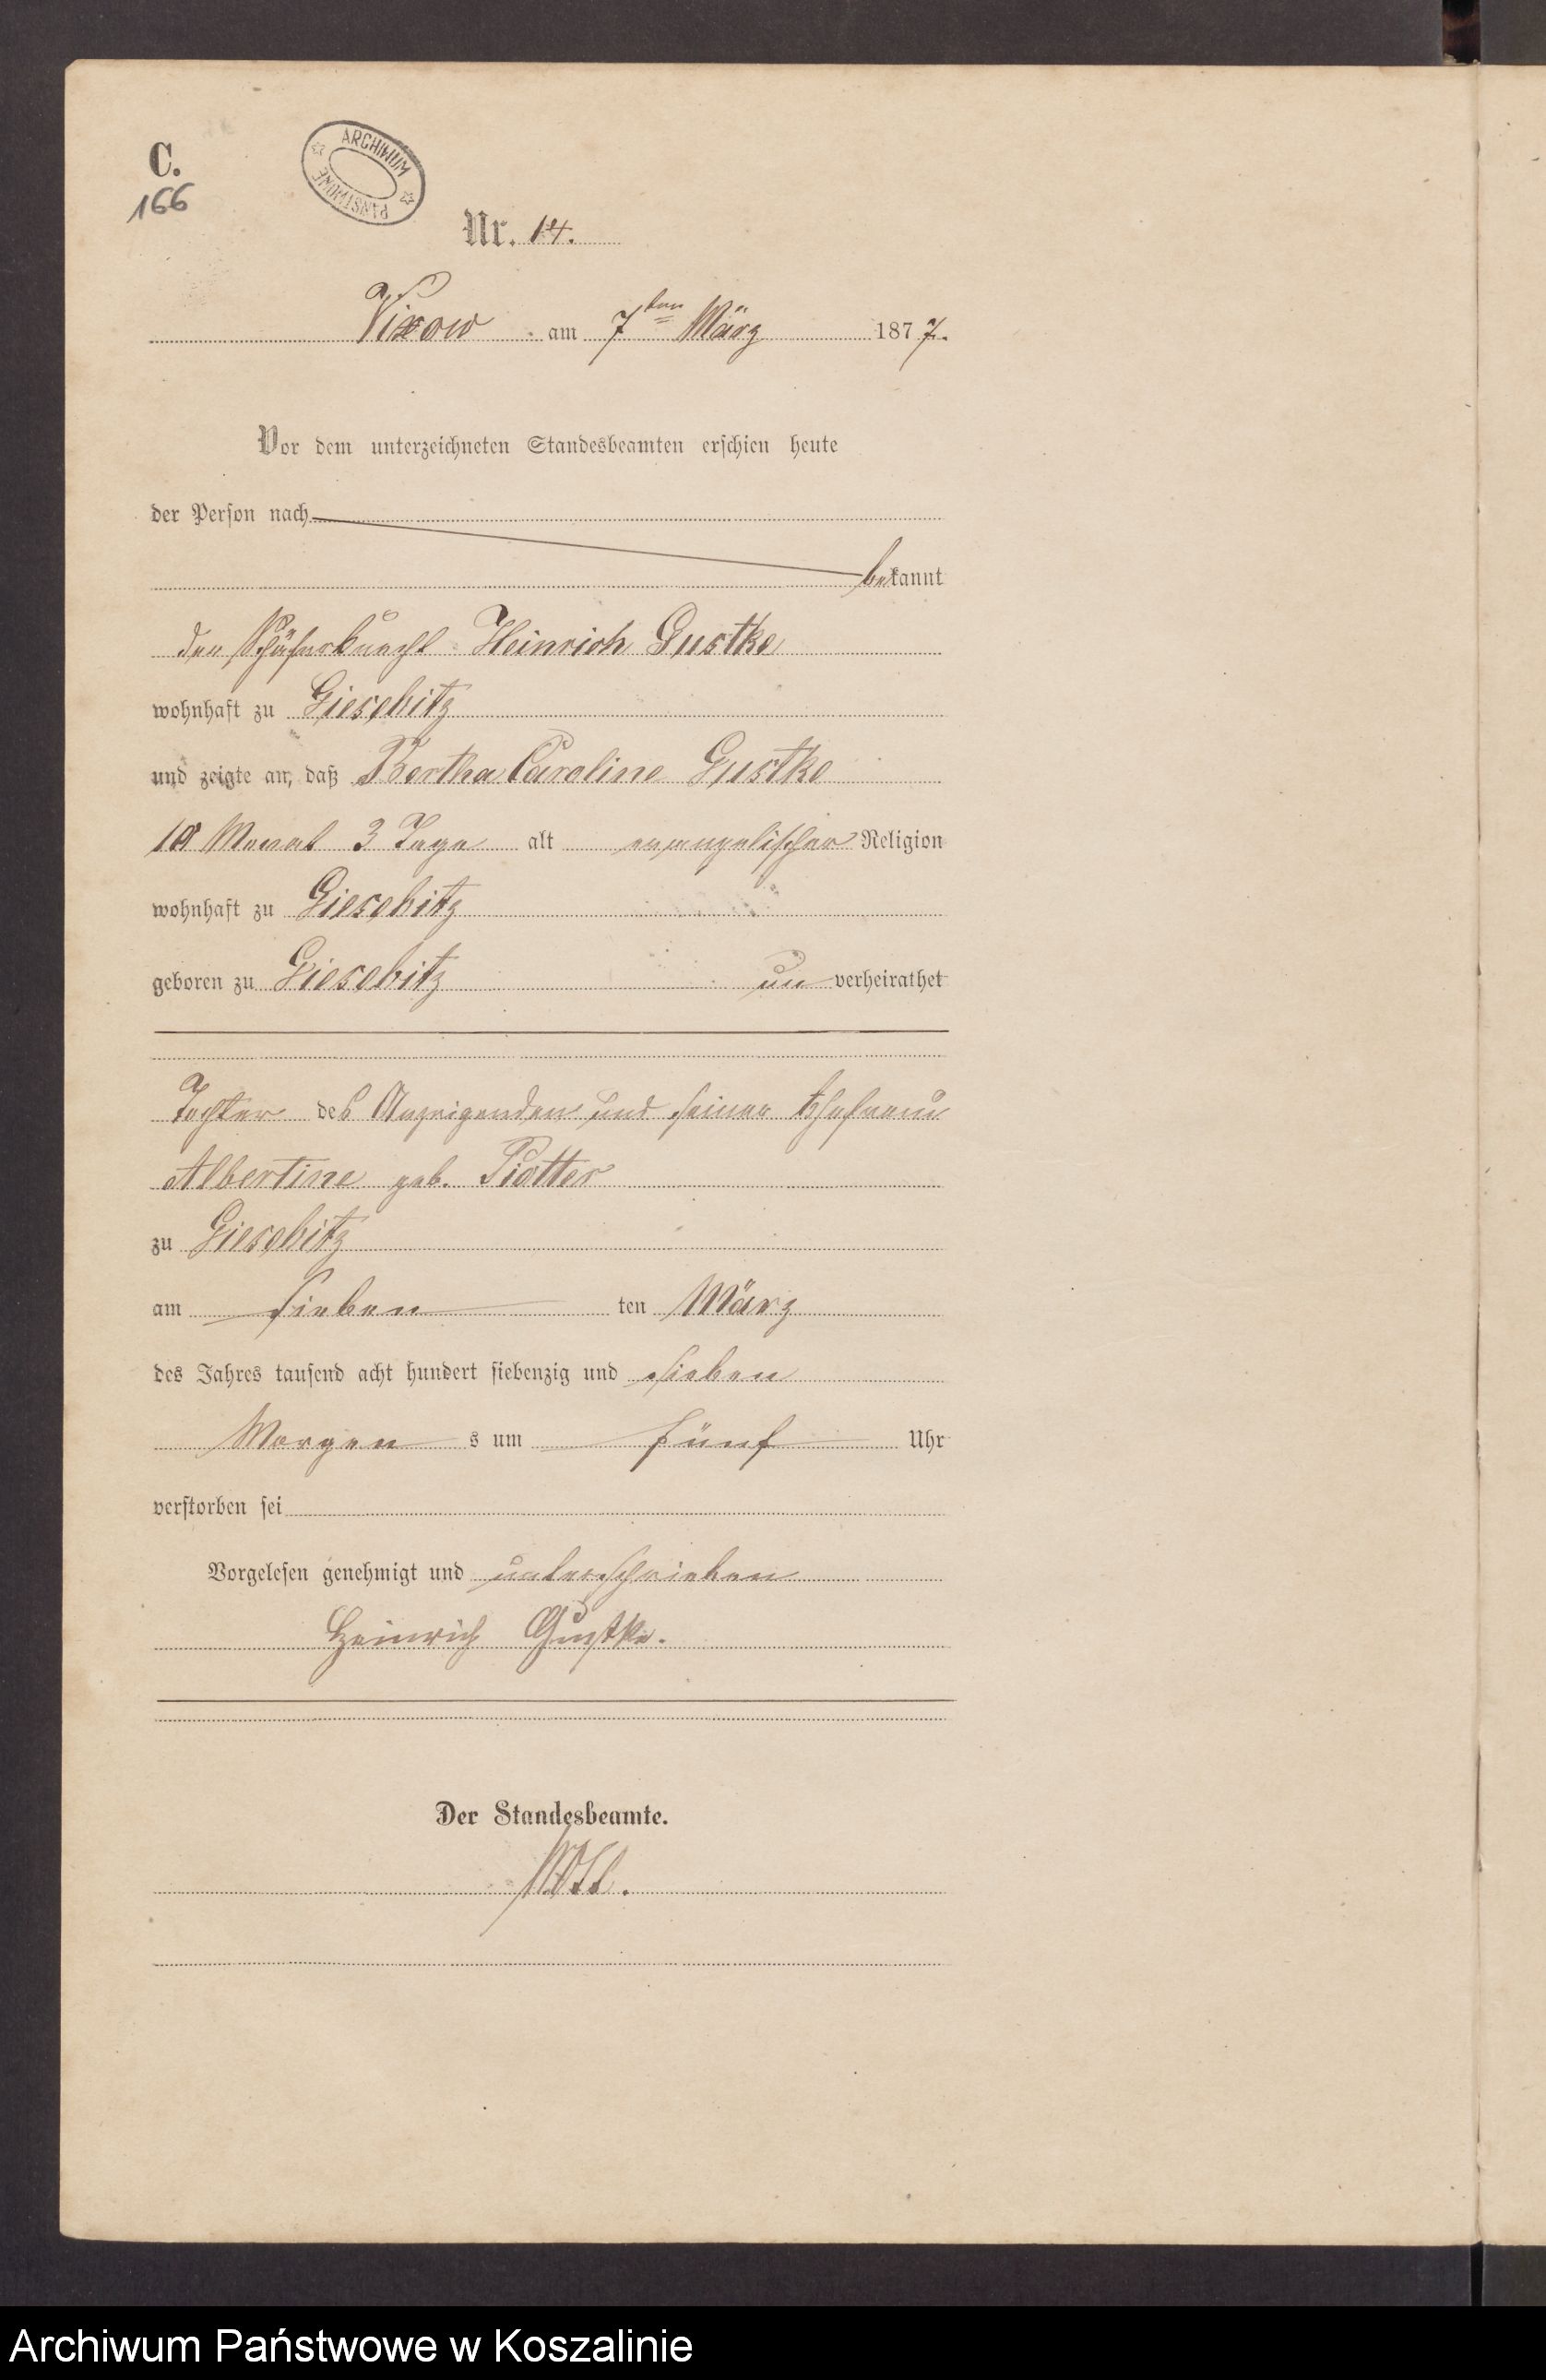 C.
166
ARCHIWUM
PAŃSTWOWE
Nr. 14.
Vixow am 7ten März 1877.
Vor dem unterzeichneten Standesbeamten erschien heute
der Person nach
bekannt
der Schäferknecht Heinrich Gustke
wohnhaft zu Giesebitz
und zeigte an, daß Bertha Caroline Gustke
Monat 3 Tage alt evangelischer Religion
wohnhaft zu Giesebitz
geboren zu Giesebitz un verheirathet
Tochter des Anzeigenden und seiner Ehefrau
Albertine geb. Piotter
zu Giesebitz
am sieben ten März
des Jahres tausend acht hundert siebenzig und sieben
Morgen s um fünf Uhr
verstorben sei
Vorgelesen genehmigt und unterschrieben
Heinrich Gustke.
Der Standesbeamte.
Archiwum Państwowe w Koszalinie